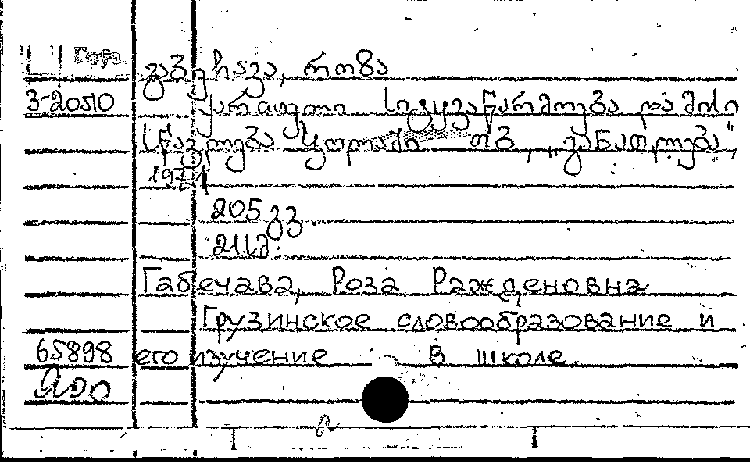 გაბეჩავა, როზა
3-20510 ქართული სიტყვაწარმოება და მისი
სწავლება სკოლაში თბ., „განათლება",
1971
205 გვ
211 გ.
Габечава, Роза Ражденовна
Грузинское словообразование и
65898 его изучение в школе